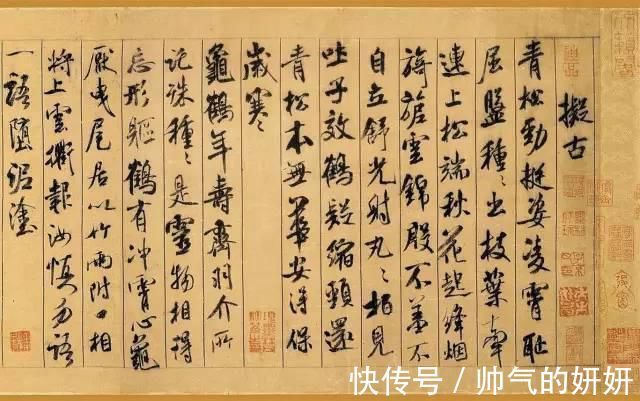 擬古
青松勁挺姿凌霄恥
屈盤種々出枝葉牽
連上松端秋花起絳烟
旖旎雲錦殷不羞不
自立舒光射丸々柏見
吐子效鶴疑縮頸還
青松本無華安得保
歲寒
龜鶴年壽齊羽介所
託殊種々是靈物相得
忘形軀鶴有冲霄心龜
厭曳尾居以竹兩附口相
將上雲衢報汝慎勿語
一語墮泥塗
快传号/帅气的妍妍